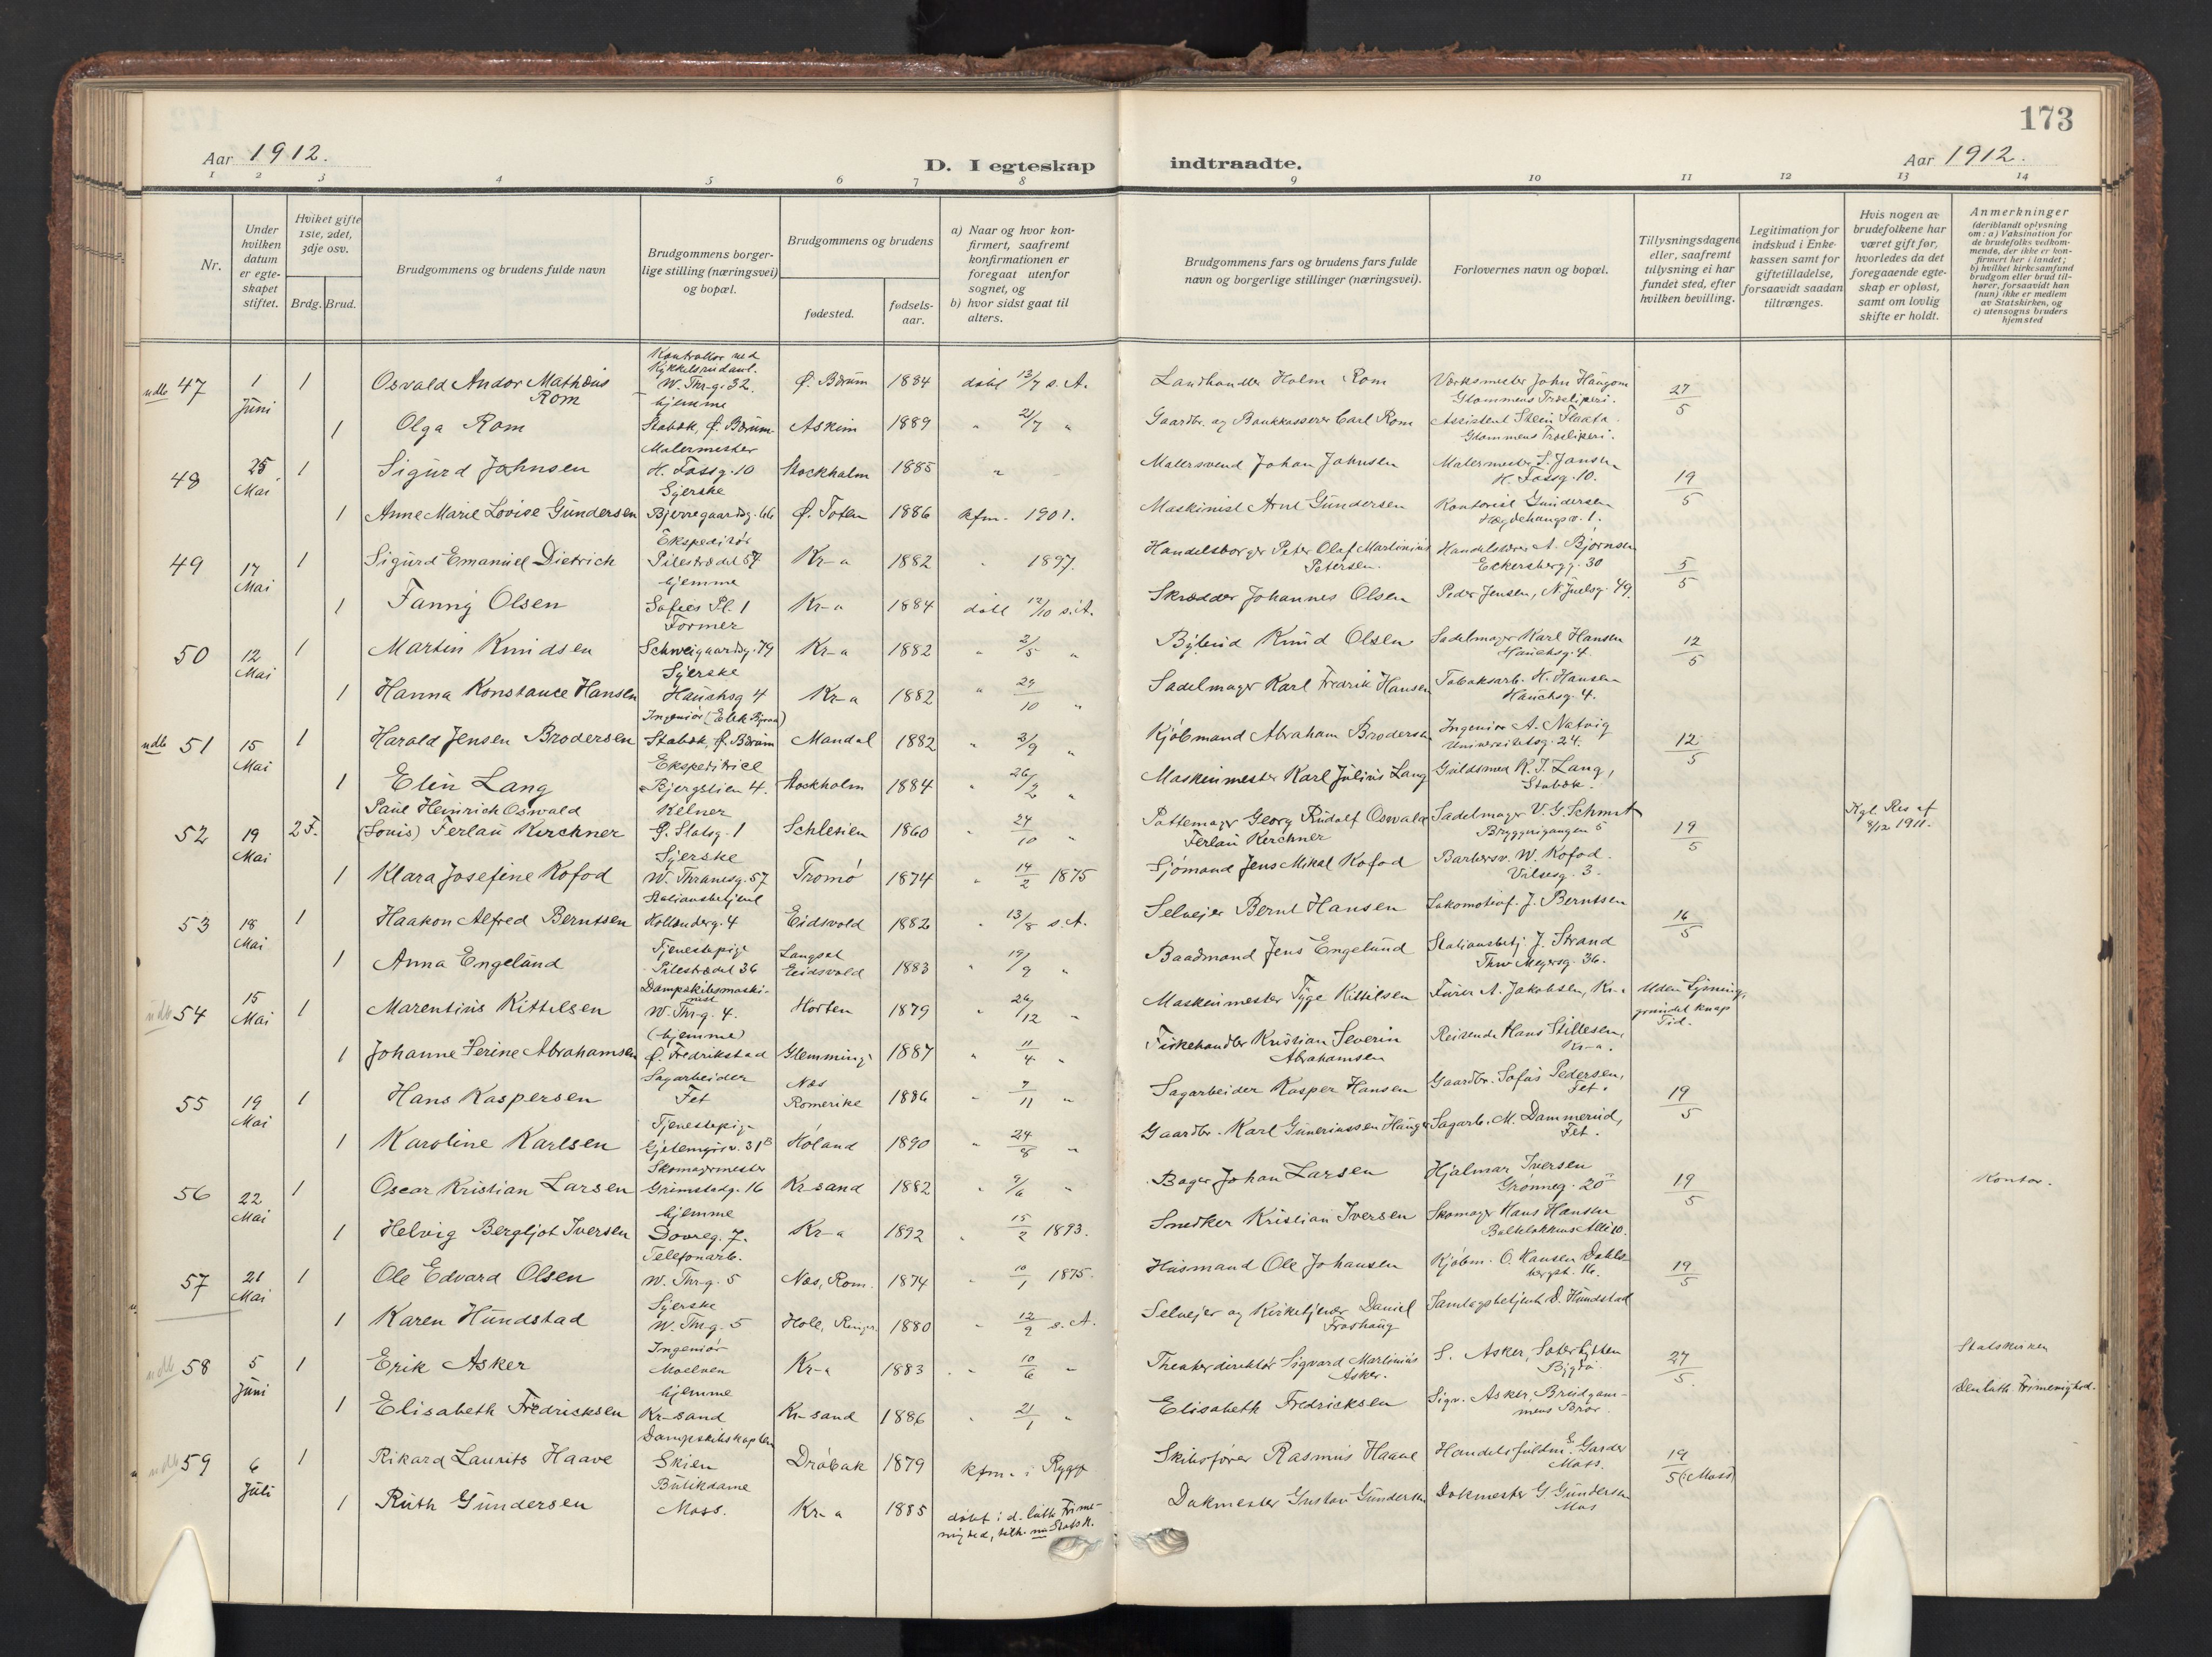 173
Aar 1912.
D. I egteskap indtraadte.
Aar 1912.
1 2 3 4 5 6 7 8 9 10 11 12 13 14
Nr.
Under hvilken datum er egteskapet stiftet.
Hviket gifte 1ste, 2det, 3dje osv.
Brdg. Brud.
Brudgommens og brudens fulde navn
Brudgommens borgerlige stilling (næringsvei) og bopæl.
Brudgommens og brudens
fødested.
fødselsaar.
a) Naar og hvor konfirmert, saafremt konfirmationen er foregaat utenfor sognet, og
b) hvor sidst gaat til alters.
Brudgommens fars og brudens fars fulde navn og borgerlige stillinger (næringsvei).
Forlovernes navn og bopæl.
Tillysningsdagene eller, saafremt tillysning ei har fundet sted, efter hvilken bevilling.
Legitimation for indskud i Enkekassen samt for giftetilladelse, forsaavidt saadan tiltrænges.
Hvis nogen av brudefolkene har været gift før, hvorledes da det foregaaende egteskap er opløst, samt om lovlig skifte er holdt.
Anmerkninger (deriblandt oplysning om: a) Vaksination for de brudefolks vedkommende, der ikke er konfirmert her i landet; b) hvilket kirkesamfund brudgom eller brud tilhører, forsaavidt han (hun) ikke er medlem av Statskirken, og c) utensogns bruders hjemsted
udb 47 1 Juni 1 Osvald Andor Mathæus Rom Kontrollør ved Kykkelsrudanl. W. Thr-g. 32. Ø. Bærum 1884 døbt 13/7 s. A. Landhandler Holm Rom Værksmester John Haugom Glommens Træsliperi. 27/5
1 Olga Rom hjemme Stabæk, Ø. Bærum Askim 1889 " 21/7 " Gaardbr. og Bankkasserer Carl Rom Assistent Stein Flaata Glommens Træsliperi.
48 25 Mai 1 Sigurd Johnsen Malermester H. Fossg. 10 Stockholm 1885 " Malersvend Johan Johnsen Malermester L. Jansen H. Fossg. 10. 19/5
1 Anne Marie Lovise Gundersen Syerske Bjerregaardsg. 66 Ø. Toten 1886 kfm. 1901. Maskinist Arnt Gundersen Kontorist Gundersen Hægdehaugsv. 1.
49 17 Mai 1 Sigurd Emanuel Dietrich Ekspeditør Pilestrædet 57 Kr-a 1882 " 1897. Handelsborger Peter Olaf Martinius Petersen. Handelsbører A. Bjørnsen Eckersbergg. 30 5/5
1 Fanny Olsen hjemme Sofies Pl. 1 Kr-a 1884 døbt 12/10 s. A. Skrædder Johannes Olsen Peder Jensen, N. Juelsg. 49.
50 12 Mai 1 Martin Knudsen Former Schweigaardsg. 79 Kr-a 1882 " 3/5 " Bybud Knud Olsen Sadelmager Karl Hansen Hauchsg. 4. 12/5
1 Hanna Konstance Hansen Syerske Hauchsg 4 Kr-a 1882 " 29/10 " Sadelmager Karl Fredrik Hansen Tobaksarb. H. Hansen Hauchsg. 4.
udb 51 15 Mai 1 Harald Jensen Brodersen Ingeniør (Elek. Byraa) Stabæk, Ø. Bærum Mandal 1882 " 3/9 " Kjøbmand Abraham Brodersen Ingeniør A. Natvig Universitetsg. 24. 12/5
1 Elin Lang Ekspeditrice Bjergstien 4. Stockholm 1884 " 26/2 " Maskinmester Karl Julius Lang Guldsmed K. J. Lang, Stabæk.
52 19 Mai 2 F. Paul Heinrich Oswald (Louis) Ferlau Kirchner Kelner Ø. Slotsg. 1 Schlesien 1860 " 24/10 " Pottemager Georg Rudolf Oswald Ferlau Kirchner Sadelmager V. G. Schmit Bryggerigangen 5 19/5 Kgl. Res af 8/12 1911.
1 Klara Josefine Kofod Syerske W. Thranesg. 57 Tromø 1874 " 14/2 1875 Sjømand Jens Mikal Kofod Barbersv. W. Kofod. Valsesg. 3.
53 18 Mai 1 Haakon Alfred Berntsen Stationsbetjent Hollenderg. 4 Eidsvold 1882 " 13/8 s. A. Selveier Bernt Hansen Lokomotivf. J. Berntsen 16/5
1 Anna Engelund Tjenestepige Pilestrædet 36 Langset Eidsvold 1883 " 19/9 " Baadmand Jens Engelund Stationsbetj. J. Strand Thv Meyersg. 36.
udb 54 15 Mai 1 Marentius Kittelsen Dampskibsmaskinist W. Thr-g. 4. Horten 1879 " 26/12 " Maskinmester Tyge Kittilsen Furer A. Jakobsen, Kr-a Uden Lysning, grundet knap Tid.
1 Johanne Serine Abrahamsen (hjemme) Ø. Fredrikstad Glemminge 1887 " 11/4 " Fiskehandler Kristian Severin Abrahamsen Reisende Hans Stillesen, Kr-a.
55 19 Mai 1 Hans Kaspersen Sagarbeider Fet Næs Romerike 1886 " 7/11 " Sagarbeider Kasper Hansen Gaardbr. Sofus Pedersen, Fet. 19/5
1 Karoline Karlsen Tjenestepige Gjetemyrsv. 31B Høland 1890 " 24/8 " Gaardbr. Karl Gunerinssen Hauger Sagarb. M. Dammerud, Fet.
56 22 Mai 1 Oscar Kristian Larsen Skomagermester Grimstadg. 16 Kr-sand 1882 " 9/6 " Bager Johan Larsen Hjalmar Iversen Grønneg. 20 19/5 Kontor.
1 Helvig Bergljot Iversen hjemme Dovreg. 7. Kr-a 1892 " 15/2 1893. Snedker Kristian Iversen Skomager Hans Hansen Balkeløkkens Allé 10.
57 21 Mai 1 Ole Edvard Olsen Telefonarb. W. Thr-g. 5 Næs, Rom. 1874 " 10/1 1875. Husmand Ole Johansen Kjøbm. O. Hansen Dahlsbergst. 16. 19/5
1 Karen Hundstad Syerske W. Thr-g. 5 Hole, Ringer. 1880 " 12/9 s. A. Selveier og Kirketjener Daniel Froshaug Samlagsbetjent D. Hundstad
udb 58 5 Juni 1 Erik Asker Ingeniør Moelven Kr-a 1883 " 10/6 " Theaterdirektør Sigvard Martinius Asker. S. Asker, Bygdø 27/5. Statskirken
1 Elisabeth Fredricksen hjemme Kr-sand Kr-sand 1886 " 21/1 " Elisabeth Fredricksen Sigv. Asker, Brudgommens Bror. Den luth. Frimenighed.
udb 59 6 Juli 1 Rikard Laurits Haave Dampskibskaptein Skien Drøbak 1879 kfm. i Rygge Skibsfører Rasmus Haave Handelsfuldm. E. Garder Moss. 19/5 (Moss)
1 Ruth Gundersen Butikdame Moss. Kr-a 1885 døbt i d. luth. Frimenighed, tilh. nu Statsk. Dokmester Gustav Gundersen Dokmester G. Gundersen Mos